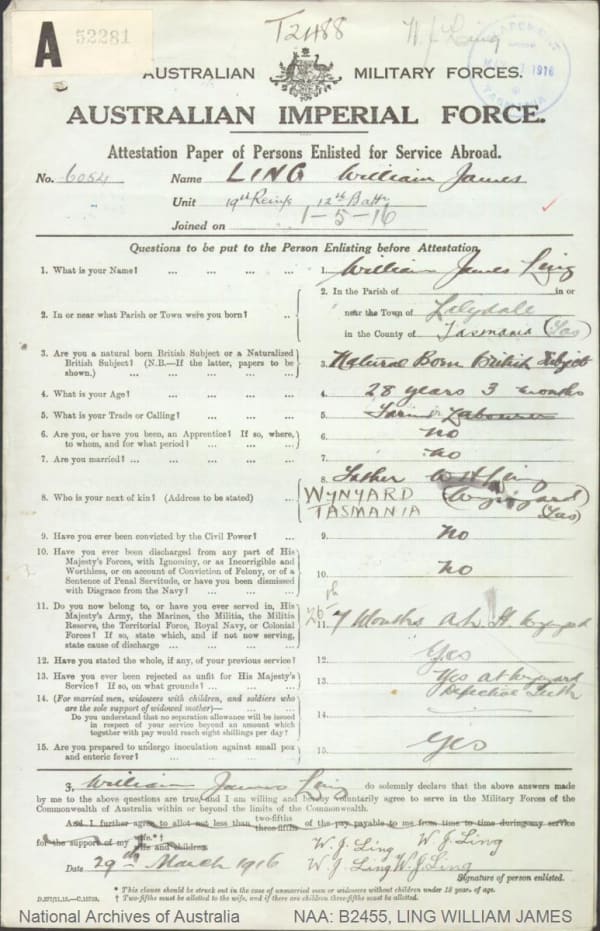 A 52281
T2488
W. J. Ling
AUSTRALIAN MILITARY FORCES.
AUSTRALIAN IMPERIAL FORCE.
Attestation Paper of Persons Enlisted for Service Abroad.
No. 6054 Name LING William James
Unit 19th Reinfs 12th Battn
Joined on 1-5-16
Questions to be put to the Person Enlisting before Attestation.
1. What is your Name? ... ... ... ... 1. William James Ling
2. In or near what Parish or Town were you born? .. 2. In the Parish of in or
near the Town of Lilydale
in the County of Tasmania (Tas)
3. Are you a natural born British Subject or a Naturalized
British Subject? (N.B.—If the latter, papers to be
shown.) ... ... ... ... ... 3. Natural Born British Subject
4. What is your Age? ... ... ... ... 4. 28 years 3 months
5. What is your Trade or Calling? ... ... ... 5. Labourer
6. Are you, or have you been, an Apprentice? If so, where,
to whom, and for what period? ... ... ... 6. no
7. Are you married? ... ... ... ... 7. no
8. Who is your next of kin? (Address to be stated) ... 8. Father W H Ling
WYNYARD (Wynyard)
TASMANIA Tas)
9. Have you ever been convicted by the Civil Power? ... 9. No
10. Have you ever been discharged from any part of His
Majesty's Forces, with Ignominy, or as Incorrigible and
Worthless, or on account of Conviction of Felony, or of a
Sentence of Penal Servitude, or have you been dismissed
with Disgrace from the Navy? ... ... ... 10. no
11. Do you now belong to, or have you ever served in, His
Majesty's Army, the Marines, the Militia, the Militia
Reserve, the Territorial Force, Royal Navy, or Colonial
Forces? If so, state which, and if not now serving,
state cause of discharge ... ... ... 11. 7 Months
12. Have you stated the whole, if any, of your previous service? 12. Yes
13. Have you ever been rejected as unfit for His Majesty's
Service? If so, on what grounds? ... ... ... 13. Yes at Wynyard
Defective Teeth
14. (For married men, widowers with children, and soldiers who
are the sole support of widowed mother)—
Do you understand that no separation allowance will be issued
in respect of your service beyond an amount which
together with pay would reach eight shillings per day? 14.
15. Are you prepared to undergo inoculation against small pox
and enteric fever? ... ... ... ... 15. Yes
I, William James Ling do solemnly declare that the above answers made
by me to the above questions are true, and I am willing and hereby voluntarily agree to serve in the Military Forces of the
Commonwealth of Australia within or beyond the limits of the Commonwealth.
And I further agree to allot not less than two-fifths three-fifths of the pay payable to me from time to time during my service
for the support of my wife.*† wife and children.
W. J. Ling W. J. Ling
Date 29th March 1916 W. J. Ling W. J. Ling
Signature of person enlisted.
* This clause should be struck out in the case of unmarried men or widowers without children under 18 year. of age.
† Two-fifths must be allotted to the wife, and if there are children three-fifths must be allotted.
National Archives of Australia NAA: B2455, LING WILLIAM JAMES